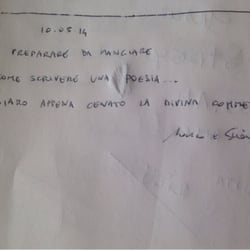 10.05.14
PREPARARE DA MANGIARE
COME SCRIVERE UNA POESIA...
APPENA CENATO LA DIVINA COMME